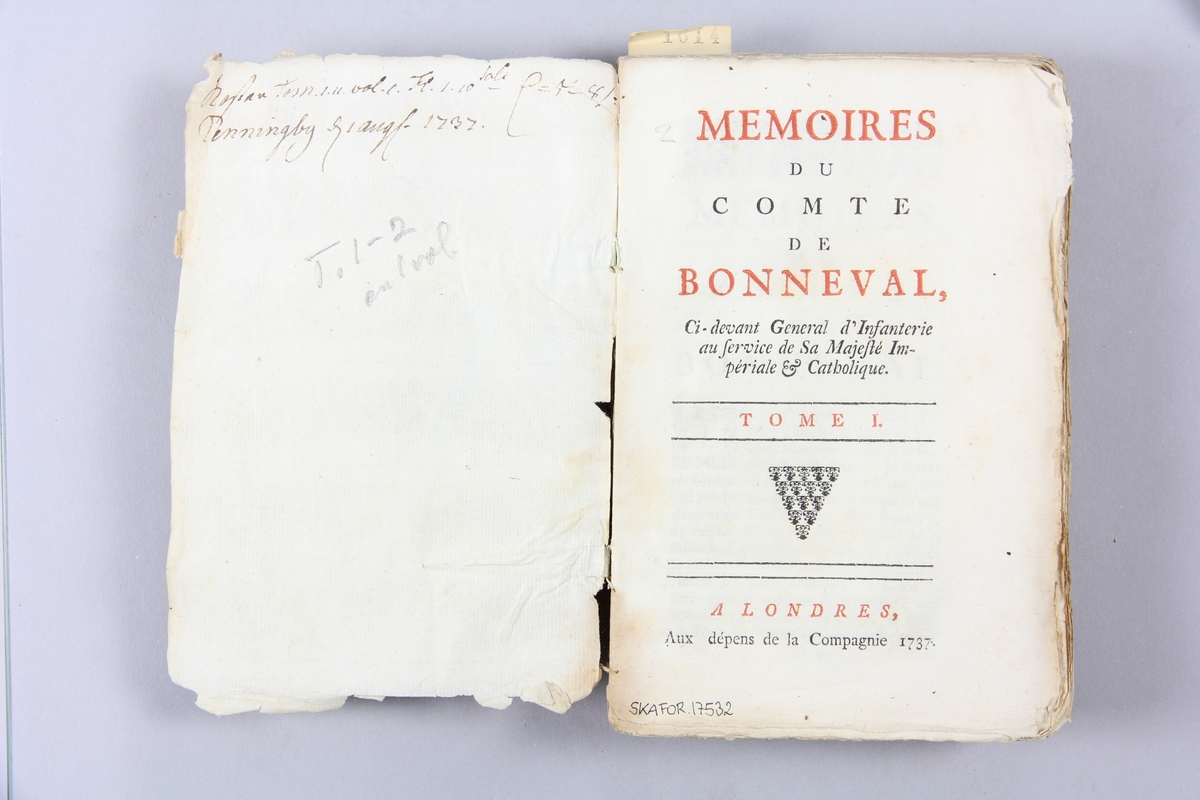 1614
Tom. vol.
Penningby 31 augs. 1737.
T. 1-2
en 1 vol.
2
MEMOIRES
DU
COMTE
DE
BONNEVAL,
Ci-devant General d'Infanterie
au ſervice de Sa Majeſté Im-
périale & Catholique.
TOME I.
A LONDRES,
Aux dépens de la Compagnie 1737.
SKAFOR.17532